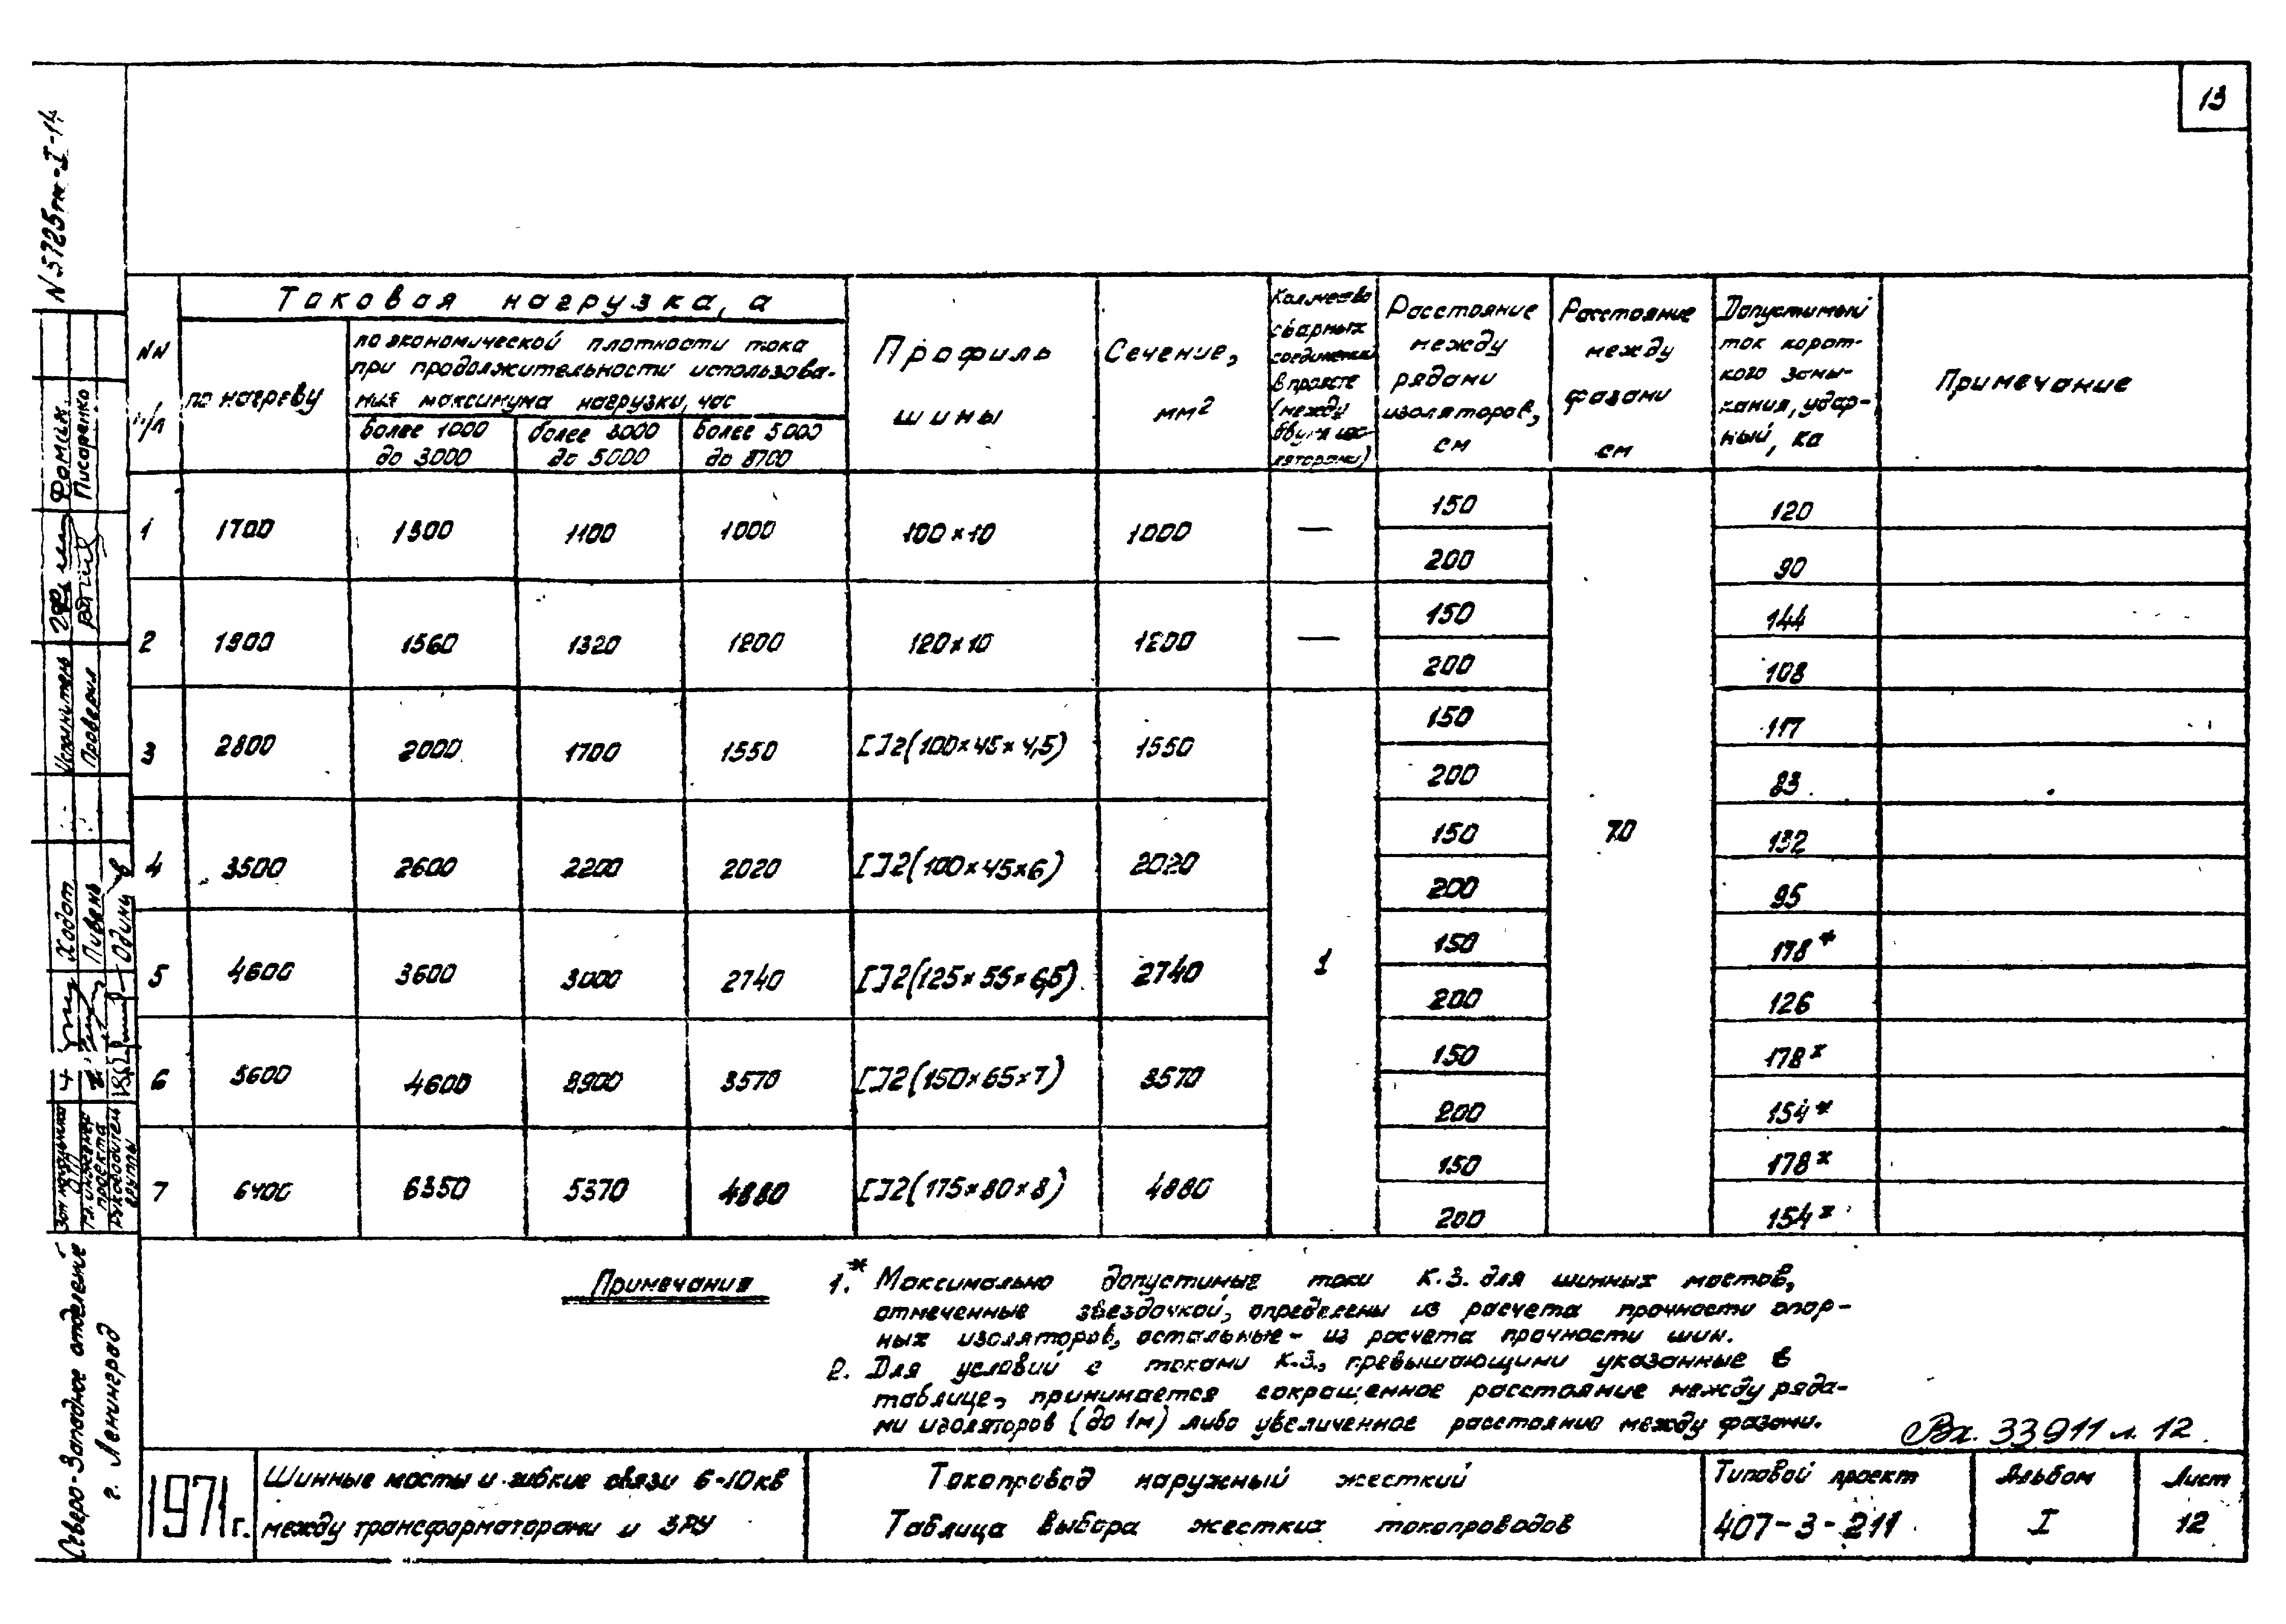 13
N 5725тм-I-14
NN п/п
Токовая нагрузка, а
по нагреву
по экономической плотности тока
при продолжительности использова-
ния максимума нагрузки, час
более 1000 до 3000
более 3000 до 5000
более 5000 до 8700
Профиль шины
Сечение, мм²
Количество
сварных
соединений
в пролете
(между
двумя изо-
ляторами)
Расстояние
между
рядами
изоляторов,
см
Расстояние
между
фазами
см
Допустимый
ток корот-
кого замы-
кания, удар-
ный, ка
Примечание
1 1700 1300 1100 1000 100×10 1000 — 150 120
200 90
2 1900 1560 1320 1200 120×10 1200 — 150 144
200 108
3 2800 2000 1700 1550 []2(100×45×4,5) 1550 150 117
200 83
4 3500 2600 2200 2020 []2(100×45×6) 2020 150 70 132
200 95
5 4600 3600 3000 2740 []2(125×55×6,5) 2740 1 150 178*
200 126
6 5600 4600 3900 3570 []2(150×65×7) 3570 150 178*
200 154*
7 6400 6350 5370 4880 []2(175×80×8) 4880 150 178*
200 154*
Примечания
1.* Максимально допустимые токи к.з. для шинных мостов,
отмеченные звездочкой, определены из расчета прочности опор-
ных изоляторов, остальные - из расчета прочности шин.
2. Для условий с токами к.з., превышающими указанные в
таблице, принимается сокращенное расстояние между ряда-
ми изоляторов (до 1м) либо увеличенное расстояние между фазами.
Вх. 33911 л. 12
Фомин
Писаренко
Исполнитель
Проверил
Ходот
Пивень
Одинц
Гл. инженер
проекта
Руководитель
группы
Северо-Западное отделение
г. Ленинград
1971г.
Шинные мосты и гибкие связи 6-10кв
между трансформаторами и ЗРУ
Токопровод наружный жесткий
Таблица выбора жестких токопроводов
Типовой проект
407-3-211
Альбом
I
Лист
12